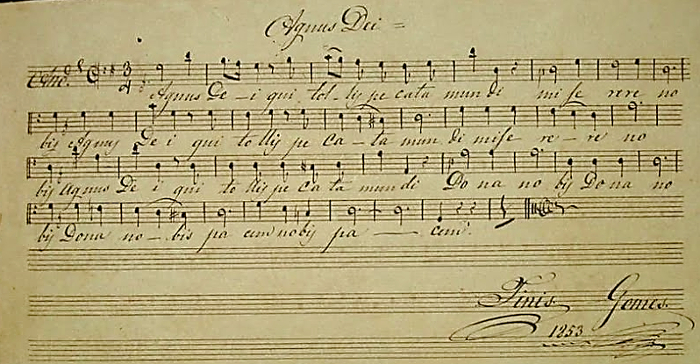 Agnus Dei =
And.e
Agnus De - i qui tol - lis pe cata mun di mi se rere no
bis Agnus De i qui to llis pe ca - ta mun di mise re - re no
bis Agnus De i qui to llis pe ca ta mun di Do na no bis Do na no
bis Dona no - bis pa cem nobis pa - cem.
Finis Gomes.
1853